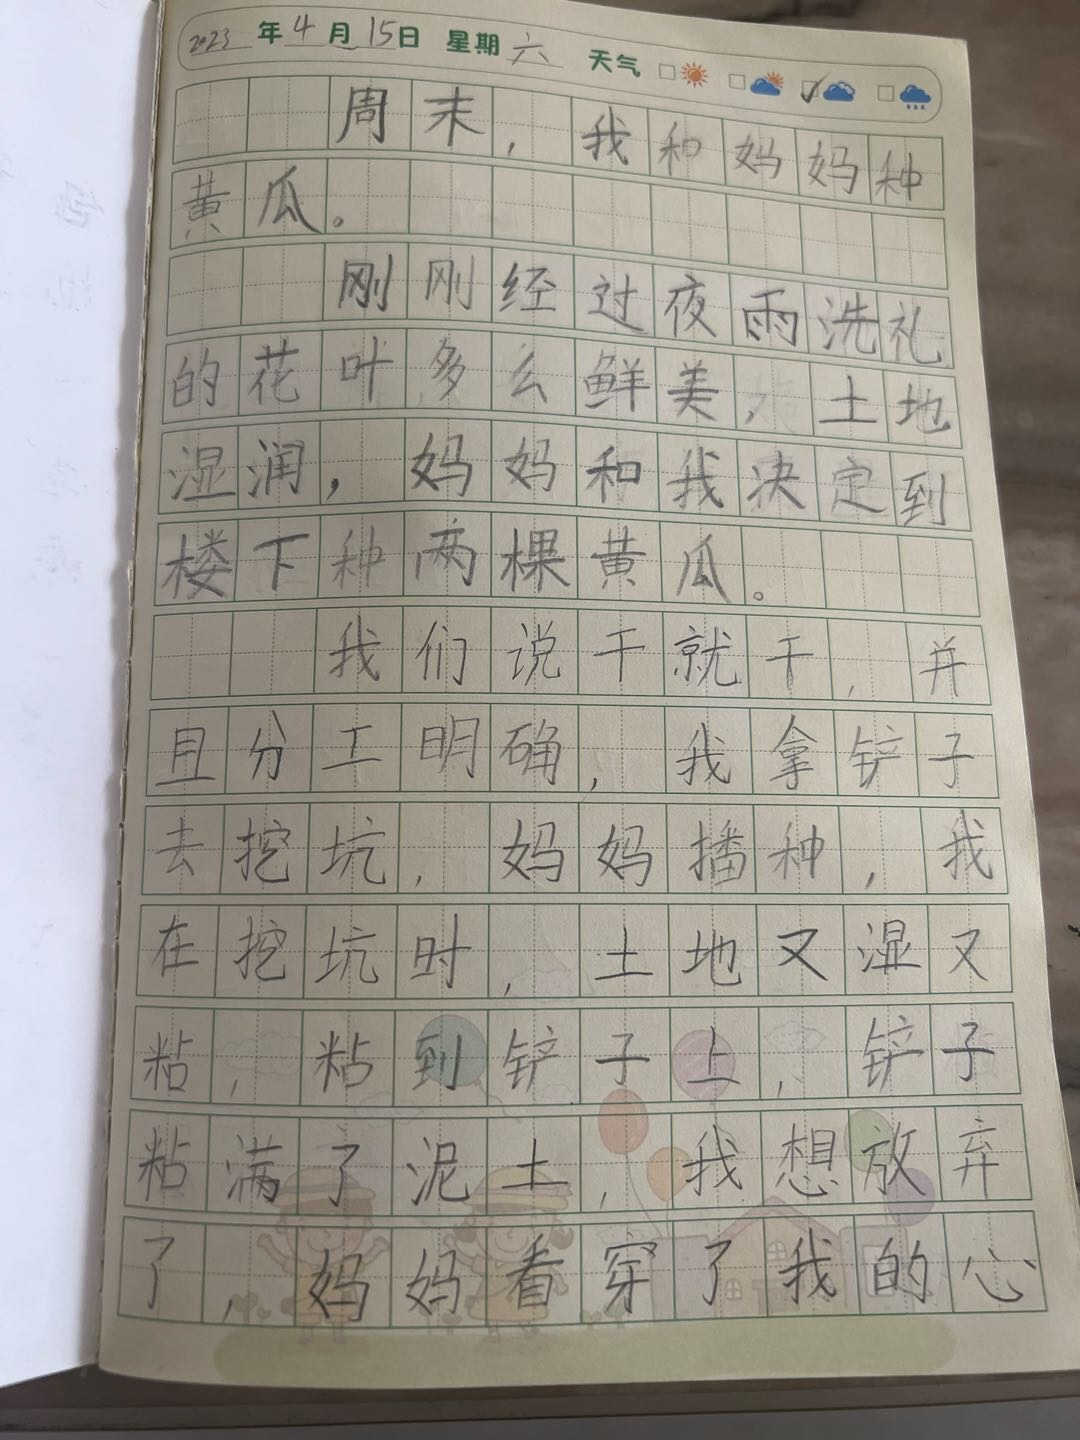 2023年4月15日 星期六 天气
周末，我和妈妈种
黄瓜。
刚刚经过夜雨洗礼
的花叶多么鲜美，土地
湿润，妈妈和我决定到
楼下种两棵黄瓜。
我们说干就干，并
且分工明确，我拿铲子
去挖坑，妈妈播种，我
在挖坑时，土地又湿又
粘，粘到铲子上，铲子
粘满了泥土，我想放弃
了，妈妈看穿了我的心